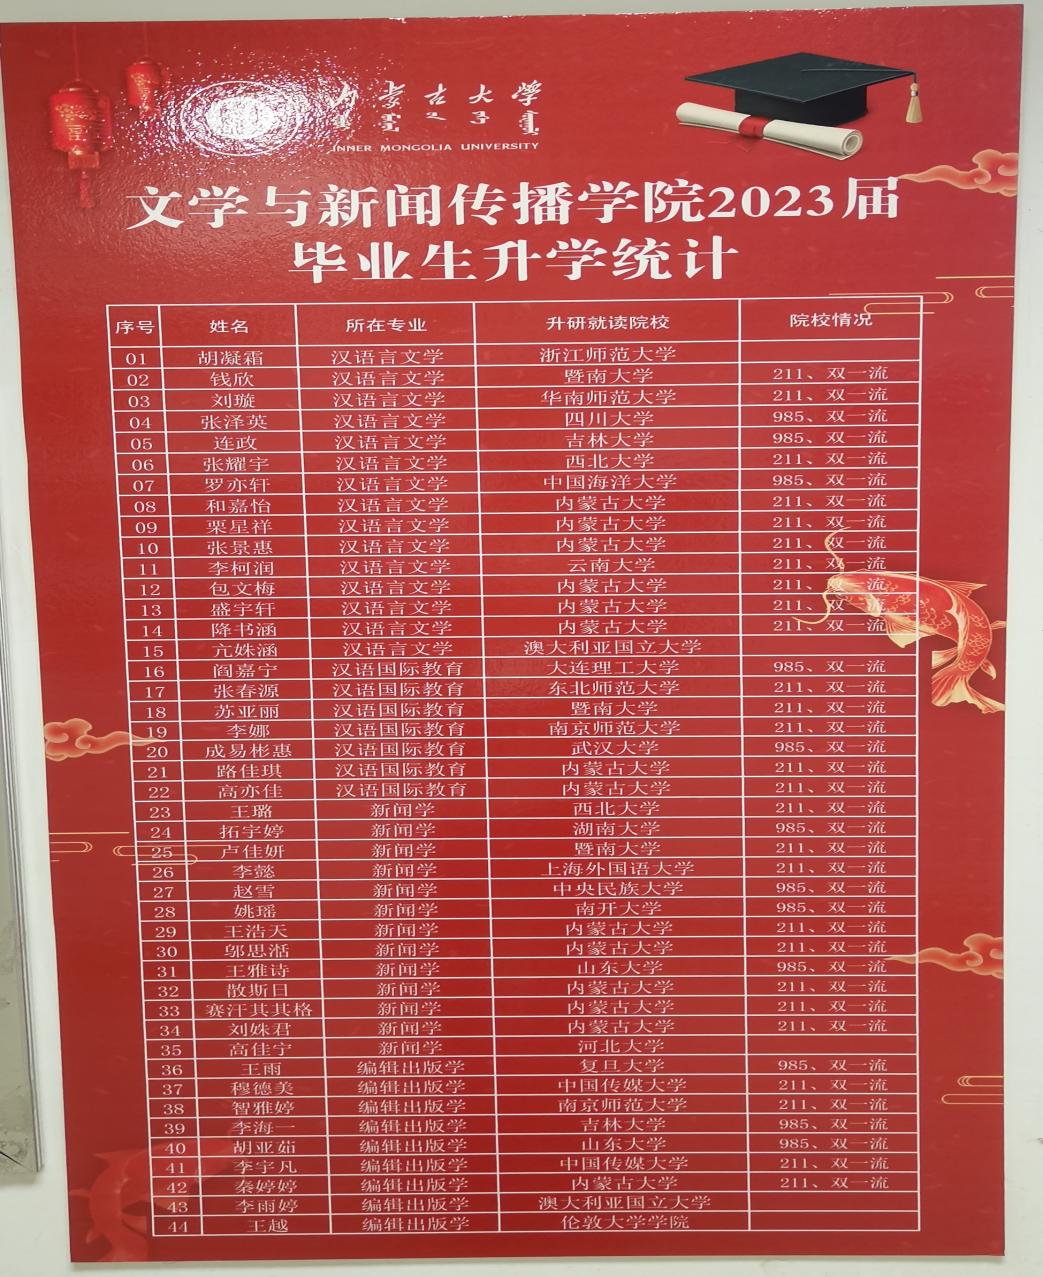 内蒙古大学
INNER MONGOLIA UNIVERSITY
文学与新闻传播学院2023届
毕业生升学统计
序号 姓名 所在专业 升研就读院校 院校情况
01 胡凝霜 汉语言文学 浙江师范大学
02 钱欣 汉语言文学 暨南大学 211、双一流
03 刘璇 汉语言文学 华南师范大学 211、双一流
04 张泽英 汉语言文学 四川大学 985、双一流
05 连政 汉语言文学 吉林大学 985、双一流
06 张耀宇 汉语言文学 西北大学 211、双一流
07 罗亦轩 汉语言文学 中国海洋大学 985、双一流
08 和嘉怡 汉语言文学 内蒙古大学 211、双一流
09 栗星祥 汉语言文学 内蒙古大学 211、双一流
10 张景惠 汉语言文学 内蒙古大学 211、双一流
11 李柯润 汉语言文学 云南大学 211、双一流
12 包文梅 汉语言文学 内蒙古大学 211、双一流
13 盛宇轩 汉语言文学 内蒙古大学 211、双一流
14 降书涵 汉语言文学 内蒙古大学 211、双一流
15 亢姝涵 汉语言文学 澳大利亚国立大学
16 阎嘉宁 汉语国际教育 大连理工大学 985、双一流
17 张春源 汉语国际教育 东北师范大学 211、双一流
18 苏亚丽 汉语国际教育 暨南大学 211、双一流
19 李娜 汉语国际教育 南京师范大学 211、双一流
20 成易彬惠 汉语国际教育 武汉大学 985、双一流
21 路佳琪 汉语国际教育 内蒙古大学 211、双一流
22 高亦佳 汉语国际教育 内蒙古大学 211、双一流
23 王璐 新闻学 西北大学 211、双一流
24 拓宇婷 新闻学 湖南大学 985、双一流
25 卢佳妍 新闻学 暨南大学 211、双一流
26 李懿 新闻学 上海外国语大学 211、双一流
27 赵雪 新闻学 中央民族大学 985、双一流
28 姚瑶 新闻学 南开大学 985、双一流
29 王浩天 新闻学 内蒙古大学 211、双一流
30 邬思湉 新闻学 内蒙古大学 211、双一流
31 王雅诗 新闻学 山东大学 985、双一流
32 散斯日 新闻学 内蒙古大学 211、双一流
33 赛汗其其格 新闻学 内蒙古大学 211、双一流
34 刘姝君 新闻学 内蒙古大学 211、双一流
35 高佳宁 新闻学 河北大学
36 王雨 编辑出版学 复旦大学 985、双一流
37 穆德美 编辑出版学 中国传媒大学 211、双一流
38 智雅婷 编辑出版学 南京师范大学 211、双一流
39 李海一 编辑出版学 吉林大学 985、双一流
40 胡亚茹 编辑出版学 山东大学 985、双一流
41 李宇凡 编辑出版学 中国传媒大学 211、双一流
42 秦婷婷 编辑出版学 内蒙古大学 211、双一流
43 李雨婷 编辑出版学 澳大利亚国立大学
44 王越 编辑出版学 伦敦大学学院